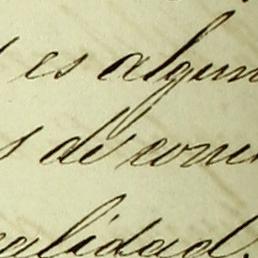 es algun
s de con
alidad.